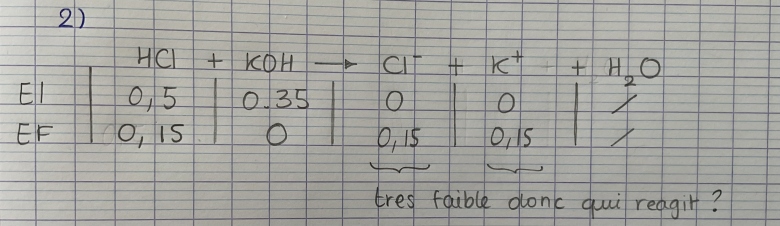 2)
HCl + KOH → Cl⁻ + K⁺ + H₂O
EI | 0,5 | 0.35 | 0 | 0 | /
EF | 0,15 | 0 | 0,15 | 0,15 | /
tres faible donc qui reagit ?